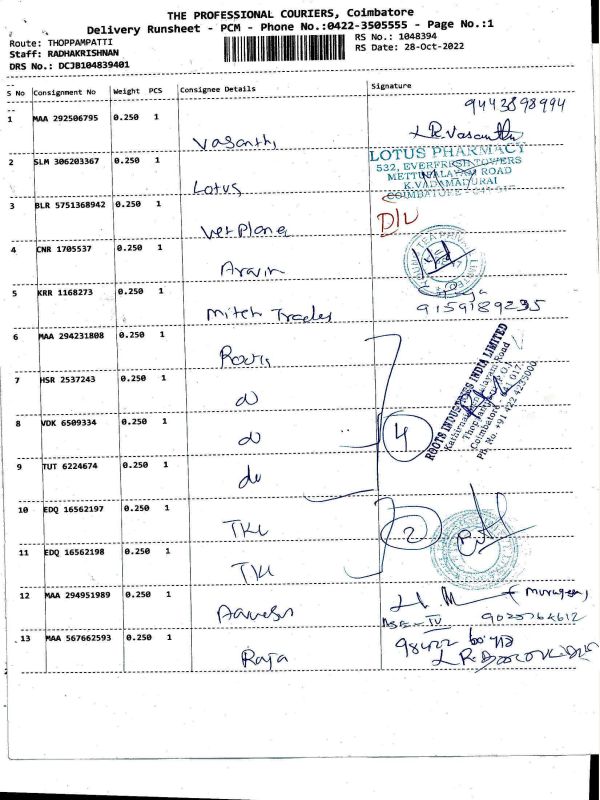 THE PROFESSIONAL COURIERS, Coimbatore
Delivery Runsheet - PCM - Phone No.:0422-3505555 - Page No.:1
Route: THOPPAMPATTI
Staff: RADHAKRISHNAN
DRS No.: DCJB104839401
RS No.: 1048394
RS Date: 28-Oct-2022
S No Consignment No Weight PCS Consignee Details Signature
9443898994
1 MAA 292506795 0.250 1
Vasanthi R.Vasanthi
2 SLM 306203367 0.250 1
Lotus
LOTUS PHARMACY
532, EVERFRESH TOWERS
METTUPALAYAM ROAD
K.VADAMADURAI
COIMBATORE
3 BLR 5751368942 0.250 1
Wetplane D/L
4 CNR 1705537 0.250 1
Aravin
5 KRR 1168273 0.250 1
Mitch Trades 9159189235
6 MAA 294231808 0.250 1
Roots
7 HSR 2537243 0.250 1
do
8 VDK 6509334 0.250 1
do 4
ROOTS INDUSTRIES INDIA LIMITED
Kathirnaickenpalayam Road
Thoppampatti P.O.
Coimbatore - 641 017.
Ph. No. +91 422 4235000
9 TUT 6224674 0.250 1
do
10 EDQ 16562197 0.250 1
TKU 2
11 EDQ 16562198 0.250 1
TKU
12 MAA 294951989 0.250 1
13 MAA 567662593 0.250 1
Raja